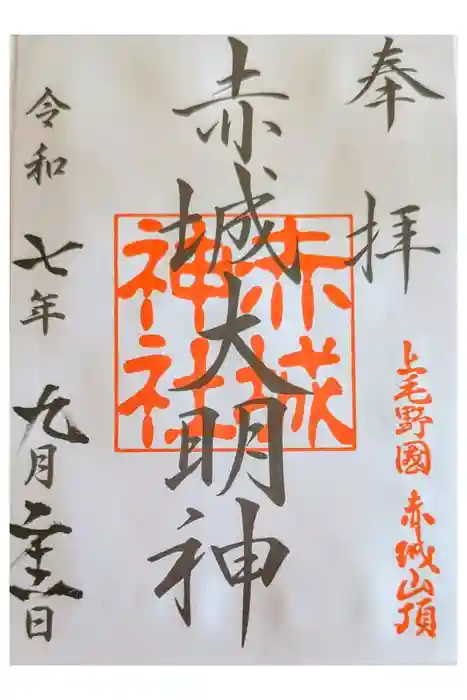 奉拝
上毛野國 赤城山頂
赤城大明神
赤城
神社
令和七年 九月 日